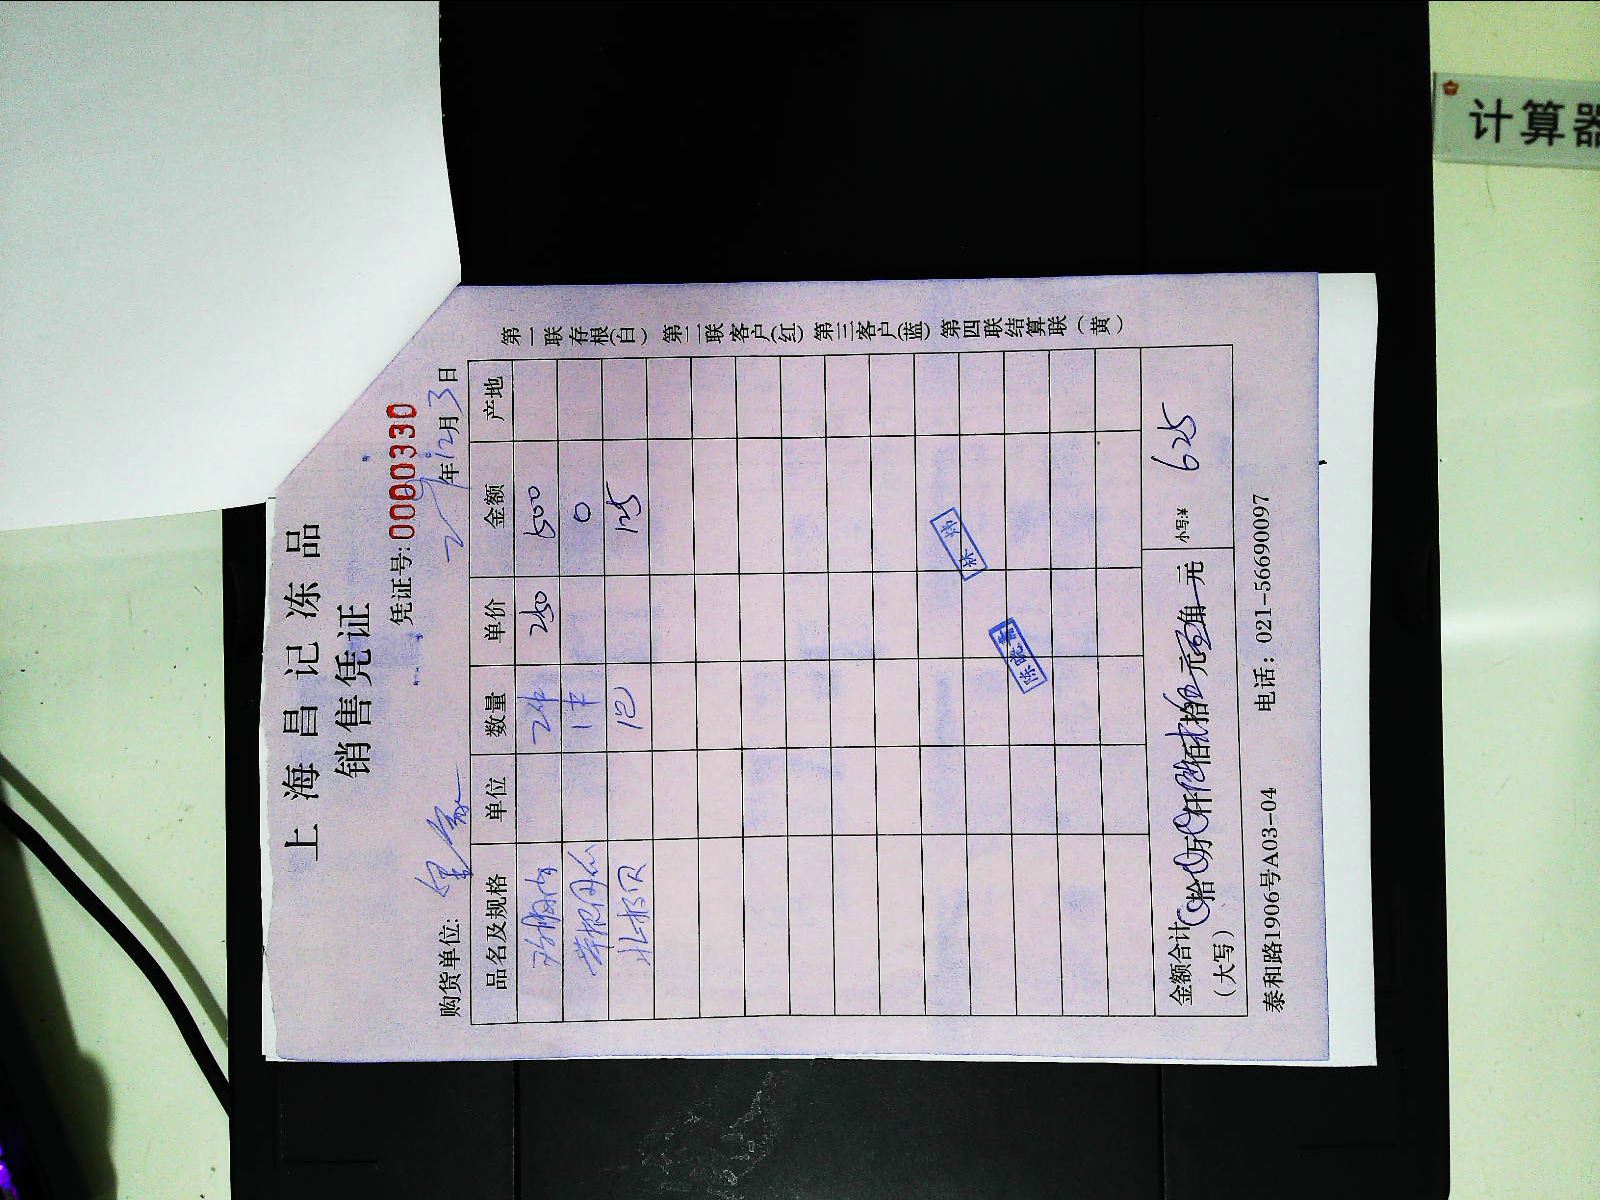 上海昌记冻品
销售凭证
凭证号:0000330
购货单位: 年12月3日
品名及规格 单位 数量 单价 金额 产地
2件 250 500
1件 0
北极贝 1包 125
金额合计 拾 万 仟陆佰贰拾伍元 角 元 小写¥ 625
(大写)
泰和路1906号A03-04 电话: 021-56690097
第一联存根(白) 第二联客户(红) 第三客户(蓝) 第四联结算联(黄)
计算器